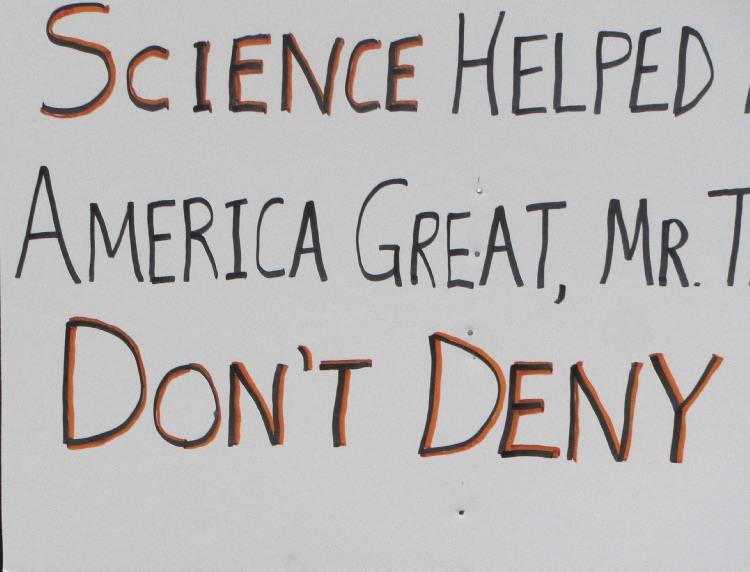 SCIENCE HELPED
AMERICA GREAT, MR. T
DON'T DENY